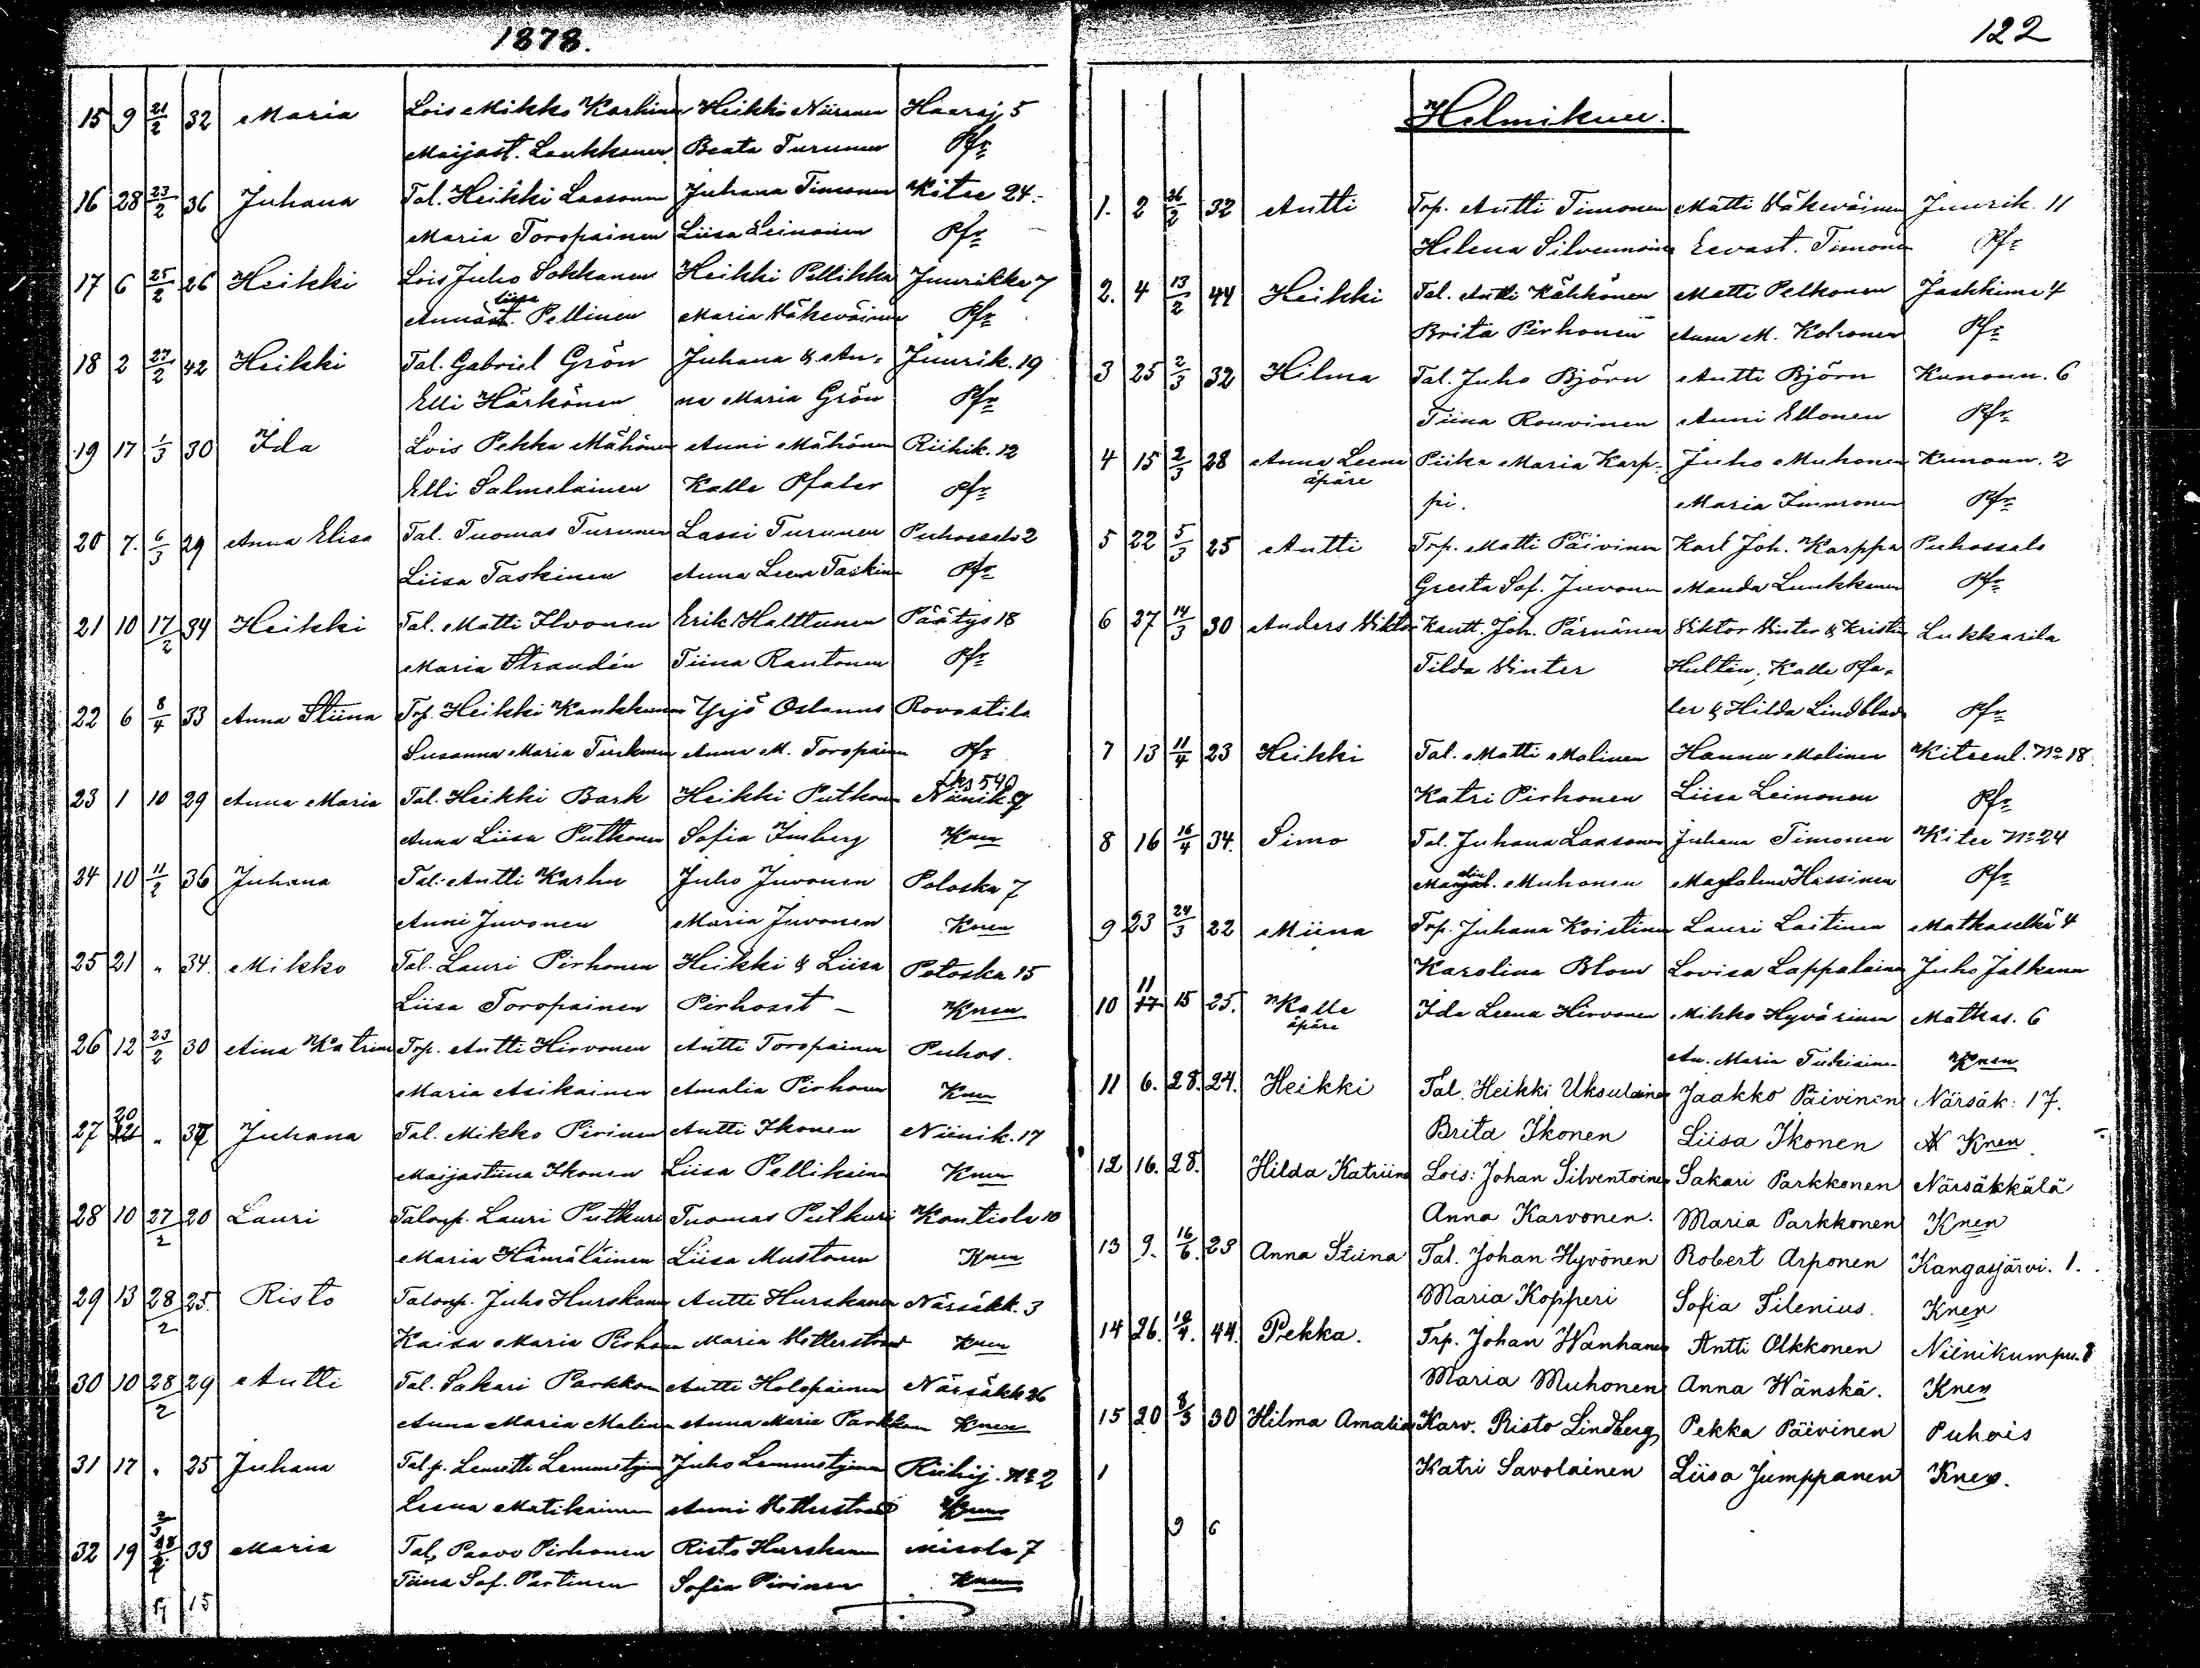 1878.
15 9 21/2 32 Maria Lois Mikko Karhinen Heikki Niiranen Haaraj. 5
Maijast. Laukkanen Beata Turunen Pfr
16 28 23/2 36 Juhana Tal. Heikki Laasonen Juhana Timonen Kitee 24.
Maria Toropainen Liisa Leinonen Pfr
17 6 25/2 26 Heikki Lois Juho Sokkanen Heikki Pellikka Juurikka 7
Pellinen Maria Väkeväinen Pfr
18 2 27/2 42 Heikki Tal. Gabriel Grön Juhana & An- Juurik. 19
Elli Härkönen na Maria Grön Pfr
19 17 1/3 30 Ida Lois Pekka Mähönen Anni Mähönen Riihik. 12
Elli Salmelainen Kalle Pfaler Pfr
20 7. 6/3 29 Anna Elisa Tal. Tuomas Turunen Lassi Turunen Puhossalo 2
Liisa Taskinen Anna Leena Taskin Pfr
21 10 17/2 34 Heikki Tal. Matti Ilvonen Erik Halttunen Päätys 18
Maria Strandén Tiina Rautonen Pfr
22 6 8/4 33 Anna Stiina Trp. Heikki Kaukkunen Yrjö Oslanus Rovastila
Susanna Maria Turkunen Anna M. Toropainen Pfr
23 1 10 29 Anna Maria Tal. Heikki Bark Heikki Putkonen Niinik 9
Anna Liisa Putkonen Sofia Imberg Knen
24 10 11/2 36 Juhana Tal. Antti Karhu Juho Juvonen Potoska 7
Anni Juvonen Maria Juvonen Knen
25 21 " 34 Mikko Tal. Lauri Pirhonen Heikki & Liisa Potoska 15
Liisa Toropainen Pirhoset - Knen
26 12 23/2 30 Aina Katrina Trp. Antti Hirvonen Antti Toropainen Puhos.
Maria Asikainen Amalia Pirhonen Knen
27 20 " 37 Juhana Tal. Mikko Pirinen Antti Ikonen Niinik. 17
Maijastiina Ikonen Liisa Pellikainen Knen
28 10 27/2 20 Lauri Talonp. Lauri Putkuri Tuomas Putkuri Kontiola 10
Maria Hämäläinen Liisa Mustonen Knen
29 13 28/2 25. Risto Talonp. Juho Hurskanen Antti Hurskanen Närsäkk. 3
Kaisa Maria Pirhonen Maria Hollerstrand Knen
30 10 28/2 29 Antti Tal. Sakari Parkkonen Antti Holopainen Närsäkk 26
Anna Maria Malinen Anna Maria Parkkonen Knen
31 17 " 25 Juhana Tal p. Lemetti Lemmetyinen Juho Lemmetyinen Riihij. No 2
Leena Matikainen Anni Hollerstrand Knen
32 19 33 Maria Tal, Paavo Pirhonen Risto Hurskanen Misola 7
Tiina Sof. Partinen Sofia Pirinen Knen
15
122
Helmikuu.
1. 2 26/2 32 Antti Trp. Antti Timonen Matti Väkeväinen Juurik. 11
Helena Silvennoinen Eevast. Timonen Pfr
2. 4 13/2 44 Heikki Tal. Antti Kähkönen Matti Pelkonen Jashkima 4
Brita Pirhonen Anna M. Kohonen Pfr
3 25 2/3 32 Hilma Tal. Juho Björn Antti Björn Kunonn. 6
Tiina Rouvinen Anni Ellonen Pfr
4 15 2/3 28 Anna Leena Piika Maria Karp- Juho Muhonen Kunonn. 2
äpäre pi. Maria Immonen Pfr
5 22 5/3 25 Antti Trp. Matti Päivinen Karl Joh. Karppa Puhossalo
Greeta Sof. Juvonen Manda Luukkanen Pfr
6 27 14/3 30 Anders Viktor Kantt. Joh. Pärnänen Viktor Vinter & Kristin Lukkarila
Tilda Vinter Hultin, Kalle Pfa-
ler & Hilda Lindblad Pfr
7 13 11/4 23 Heikki Tal. Matti Malinen Hannu Malinen Kiteenl. No 18
Katri Pirhonen Liisa Leinonen Pfr
8 16 16/4 34. Simo Tal. Juhana Laasonen Juhana Timonen Kitee No 24
Muhonen Magdalena Hassinen Pfr
9 23 24/3 22 Miina Trp. Juhana Koistinen Lauri Laitinen Matkaselkä 4
Karolina Blom Lovisa Lappalainen Juho Jalkanen
10 11 15 25. Kalle Ida Leena Hirvonen Mikko Hyvärinen Matkas. 6
äpäre An. Maria Tukiainen Knen
11 6. 28. 24. Heikki Tal. Heikki Uksulainen Jaakko Päivinen Närsäk: 17.
Brita Ikonen Liisa Ikonen Knen
12 16. 28. Hilda Katriina Lois: Johan Silventoinen Sakari Parkkonen Närsäkkälä
Anna Karvonen. Maria Parkkonen Knen
13 9. 16/6. 23 Anna Stiina Tal. Johan Hyvönen Robert Arponen Kangasjärvi. 1.
Maria Kopperi Sofia Silenius. Knen
14 26. 18/4. 44. Pekka. Trp. Johan Wanhanen Antti Olkkonen Niinikumpu. 8
Maria Muhonen Anna Wänskä. Knen
15 20 8/3 30 Hilma Amalia Karv. Risto Lindberg Pekka Päivinen Puhois
1 Katri Savolainen Liisa Jumppanen Knen.
9 6